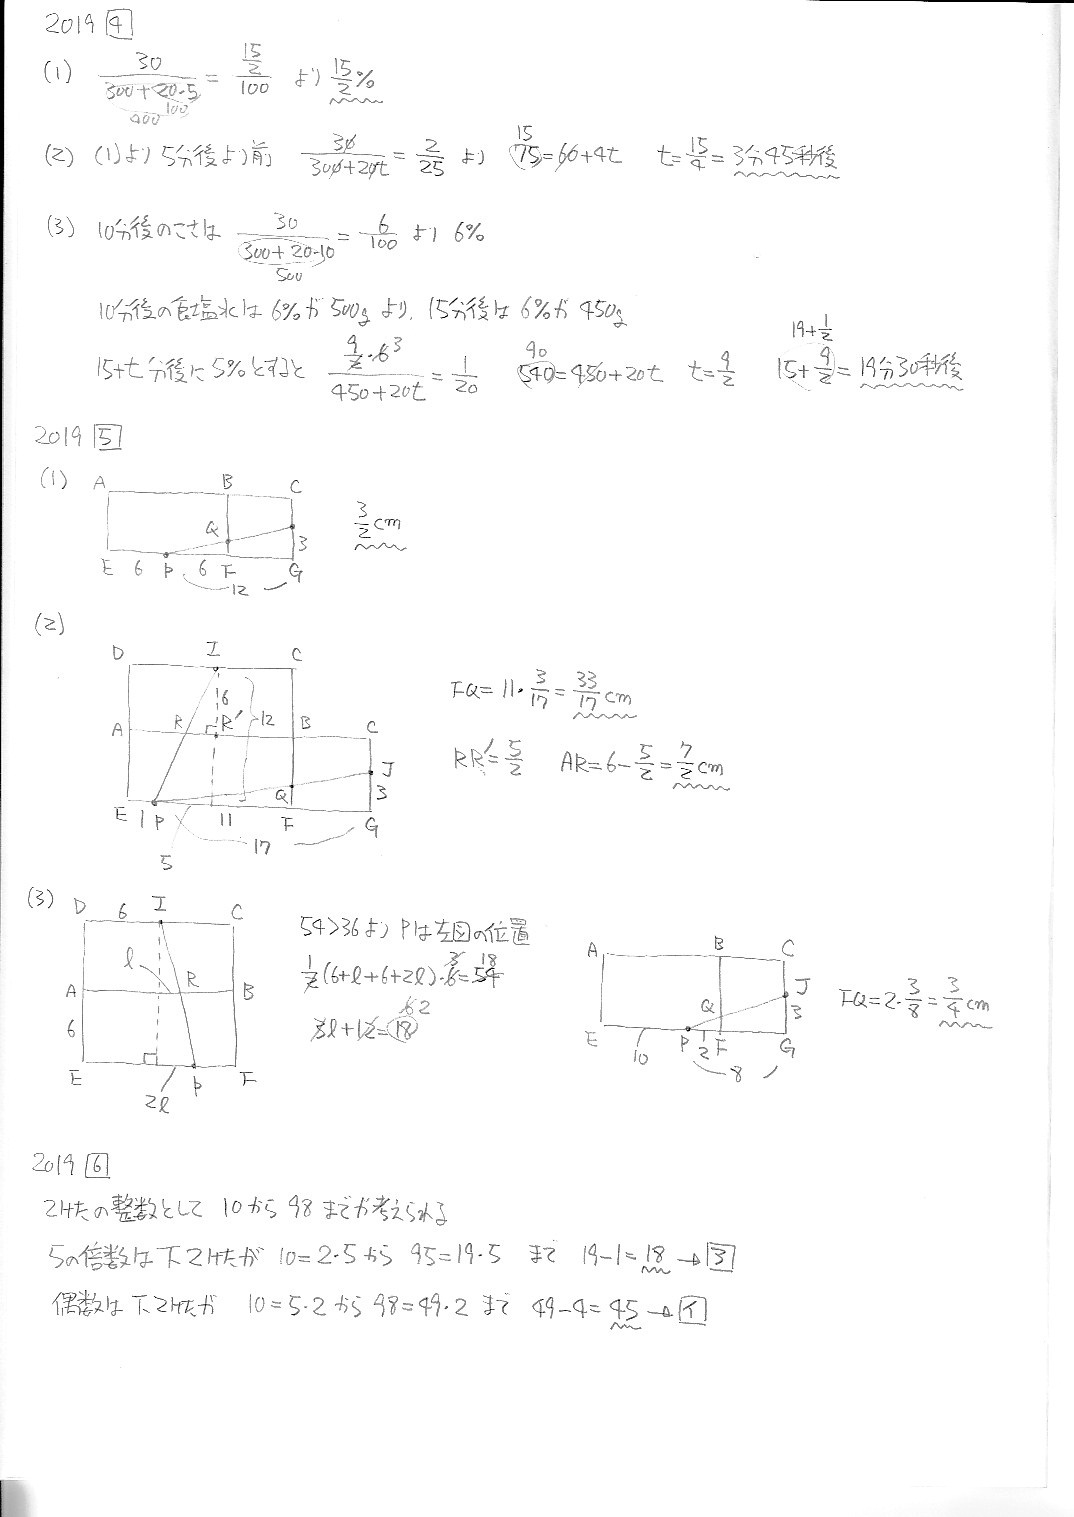 2019 4
(1) 30/(300+20·5) = (15/2)/100 より 15/2%
100
400
(2) (1)より 5分後より前 30/(300+20t) = 2/25 より 75=60+4t t=15/4=3分45秒後
15
(3) 10分後のこさは 30/(300+20·10) = 6/100 より 6%
500
10分後の食塩水は 6%が500gより, 15分後は6%が450g
15+t分後に5%とすると (9/2·6 3)/(450+20t) = 1/20 540=450+20t t=9/2 15+9/2=19分30秒後
90
19+1/2
2019 5
(1) A B C
Q
3
E 6 P 6 F G
12
3/2 cm
(2)
D I C
6
12
A R R' B C
J
Q 3
E 1 P 11 F G
17
5
FQ=11·3/17=33/17 cm
RR'=5/2 AR=6-5/2=7/2 cm
(3) D 6 I C
l
R
A B
6
E P F
2l
54>36より Pは左図の位置
1/2(6+l+6+2l)·6=54
3 18
3l+12=18
6 2
A B C
J
Q 3
E P 2 F G
10
8
FQ=2·3/8=3/4 cm
2019 6
2けたの整数として 10から 98 までが考えられる
5の倍数は下2けたが 10=2·5から 95=19·5 まで 19-1=18 → 3
偶数は下2けたが 10=5·2から 98=49·2 まで 49-4=45 → イ